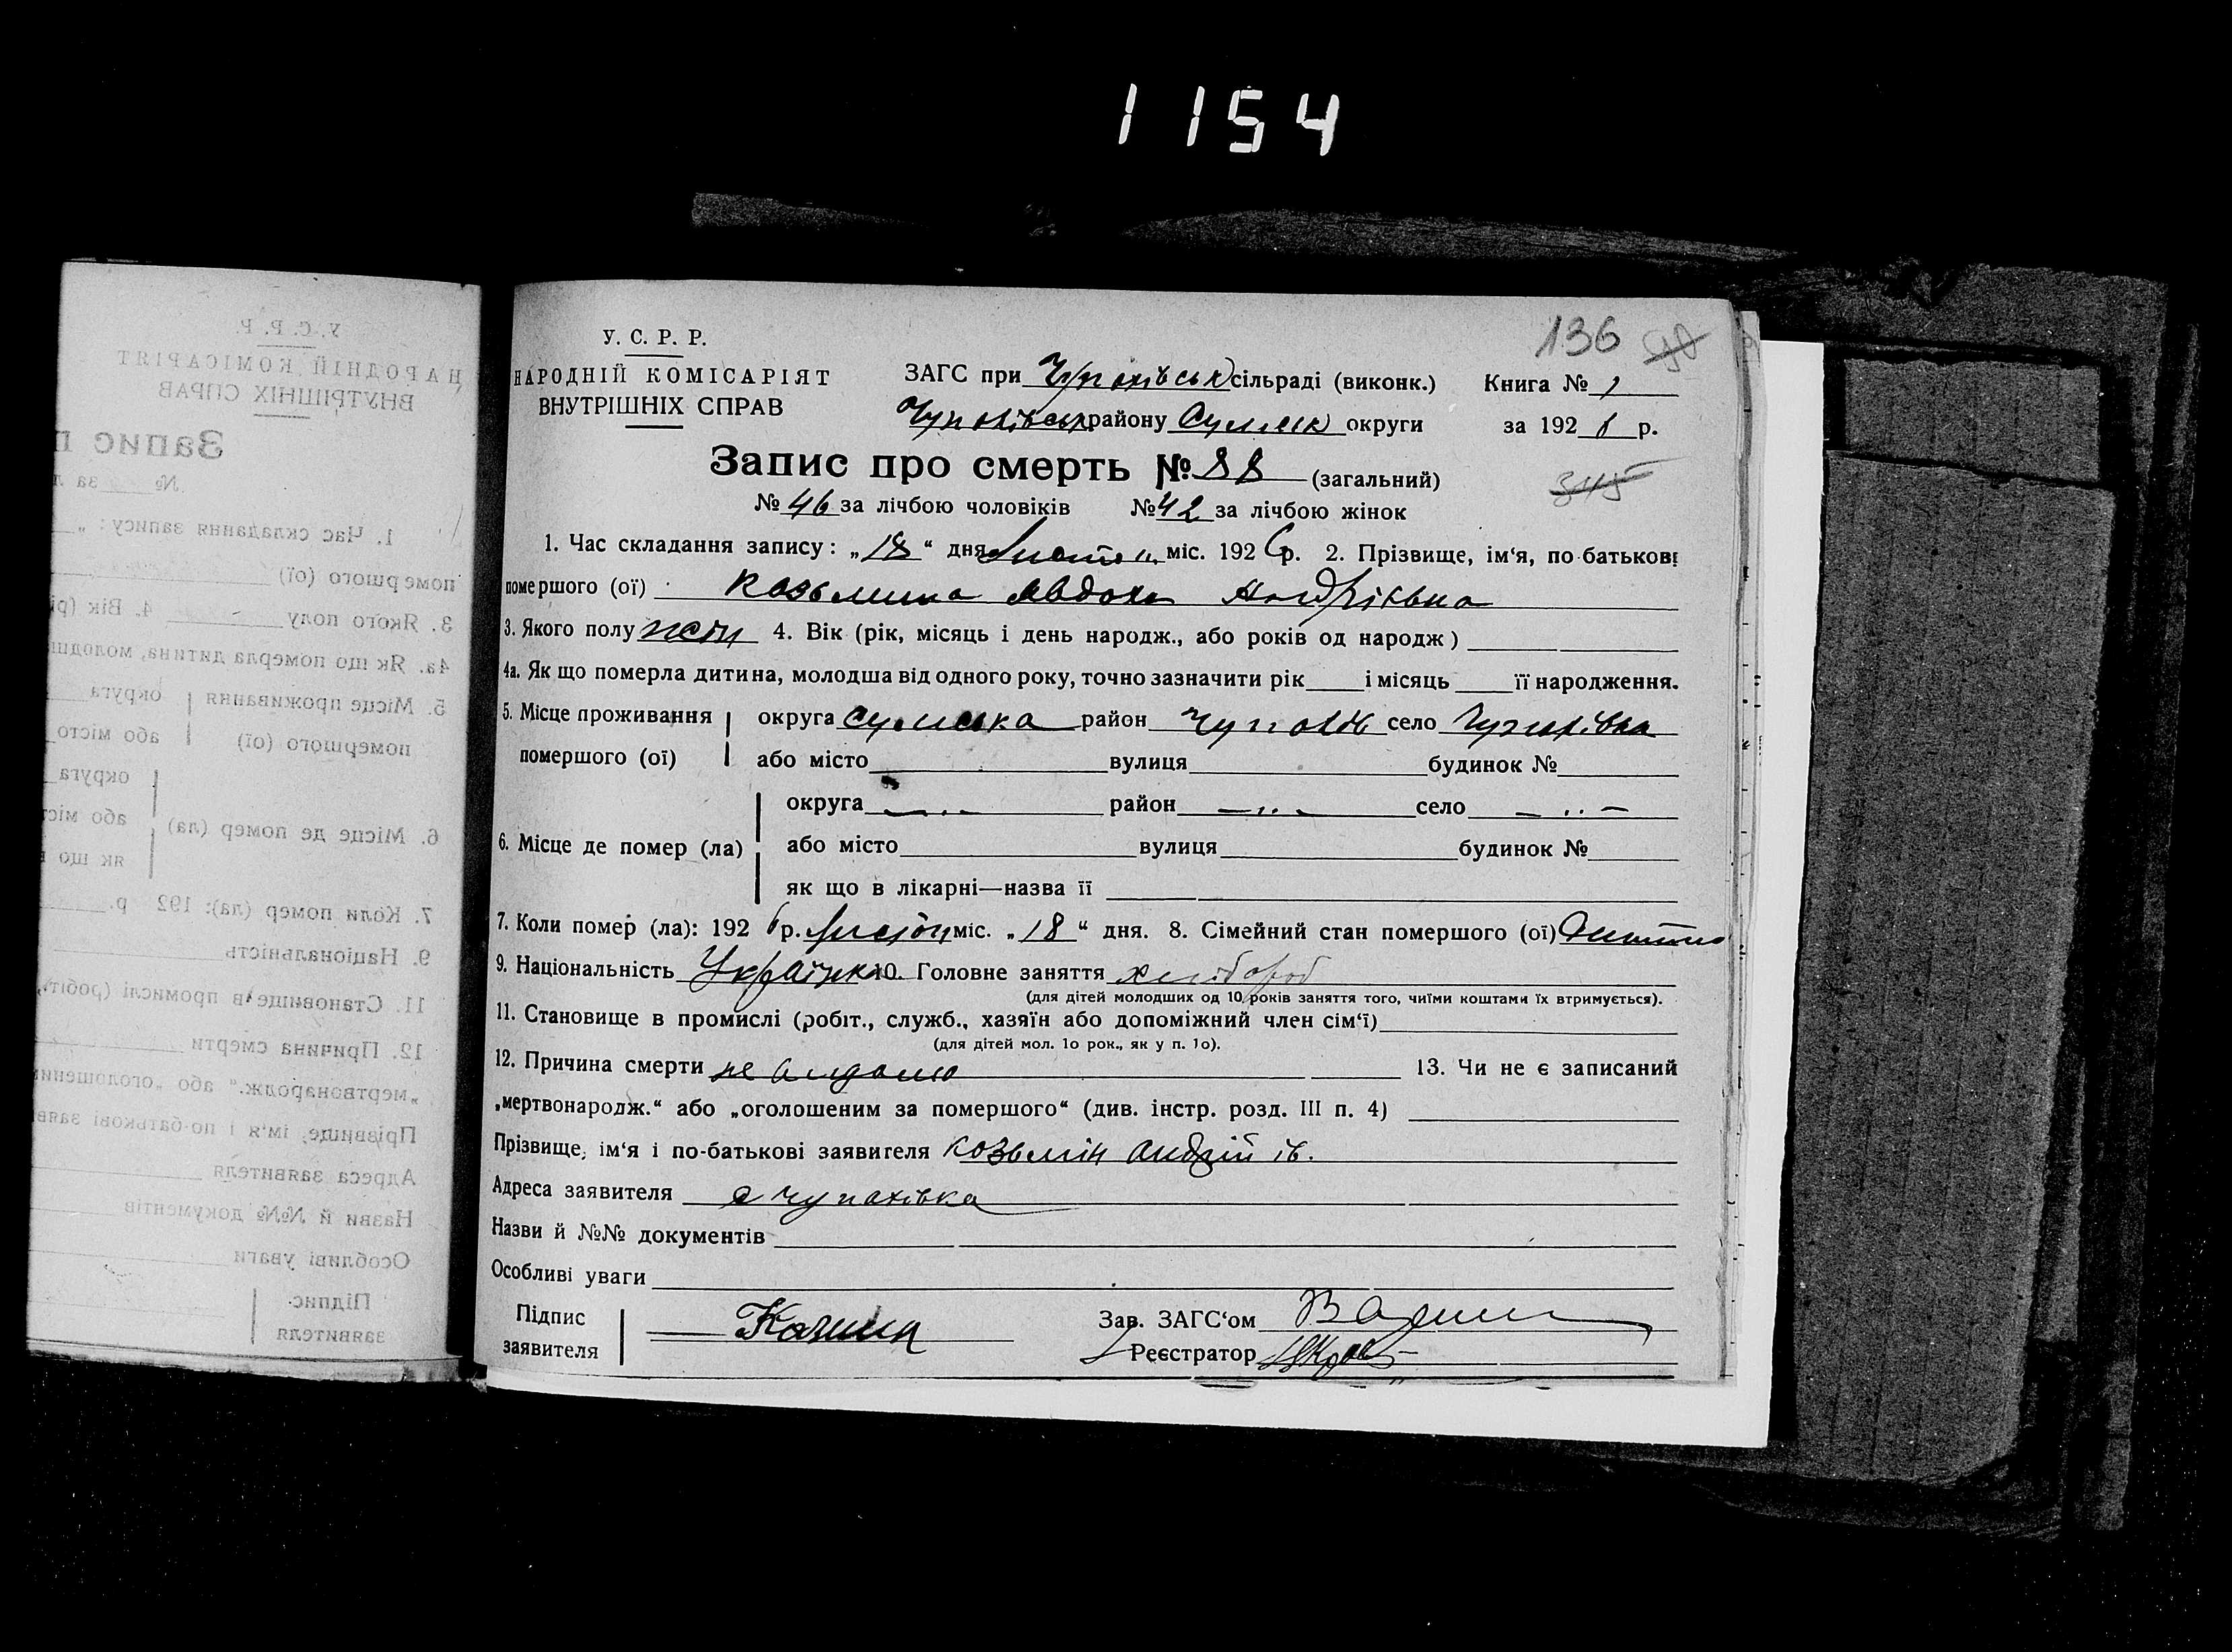 1154
136
У. С. Р. Р.
НАРОДНІЙ КОМІСАРІЯТ
ВНУТРІШНІХ СПРАВ
ЗАГС при Чупахівськ сільраді (виконк.) Книга № 1
Чупахівськ району Сумськ округи за 192 6 р.
Запис про смерть № 88 (загальний)
345
№ 46 за лічбою чоловіків № 42 за лічбою жінок
1. Час складання запису: „18“ дня міс. 192 6 р. 2. Прізвище, ім‘я, по-батькові
помершого (ої) Козьмина Авдотя Андріївна
3. Якого полу жін 4. Вік (рік, місяць і день народж., або років од народж)
4а. Як що померла дитина, молодша від одного року, точно зазначити рік і місяць її народження.
5. Місце проживання помершого (ої) округа Сумська район Чупахів село Чупахівка
або місто вулиця будинок №
6. Місце де помер (ла) округа —〃— район —〃— село —〃—
або місто вулиця будинок №
як що в лікарні—назва її
7. Коли помер (ла): 192 6 р. міс. „18“ дня. 8. Сімейний стан помершого (ої) Дитина
9. Національність Українка 10. Головне заняття хлібороб
(для дітей молодших од 10 років заняття того, чиїми коштами їх втримується).
11. Становище в промислі (робіт., служб., хазяїн або допоміжний член сім‘ї)
(для дітей мол. 1о рок., як у п. 1о).
12. Причина смерти не 13. Чи не є записаний
„мертвонародж.“ або „оголошеним за помершого“ (див. інстр. розд. III п. 4)
Прізвище, ім‘я і по-батькові заявителя Козьмін Андрій ів.
Адреса заявителя с Чупахівка
Назви й №№ документів
Особливі уваги
Підпис заявителя
Зав. ЗАГС‘ом
Реєстратор
У. С. Р. Р.
НАРОДНІЙ КОМІСАРІЯТ
ВНУТРІШНІХ СПРАВ
Запис п
№ за л
1. Час складання запису: „
помершого (ої)
3. Якого полу 4. Вік (рі
4а. Як що померла дитина, молодш
5. Місце проживання помершого (ої) округа
або місто
округа
6. Місце де помер (ла) або міс
як що в
7. Коли помер (ла): 192 р.
9. Національність
11. Становище в промислі (робіт.,
12. Причина смерти
„мертвонародж.“ або „оголошеним
Прізвище, ім‘я і по-батькові заяв
Адреса заявителя
Назви й №№ документів
Особливі уваги
Підпис
заявителя